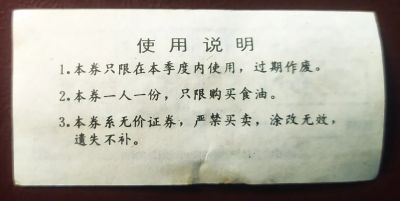 使用说明
1.本券只限在本季度内使用，过期作废。
2.本券一人一份，只限购买食油。
3.本券系无价证券，严禁买卖，涂改无效，
遗失不补。